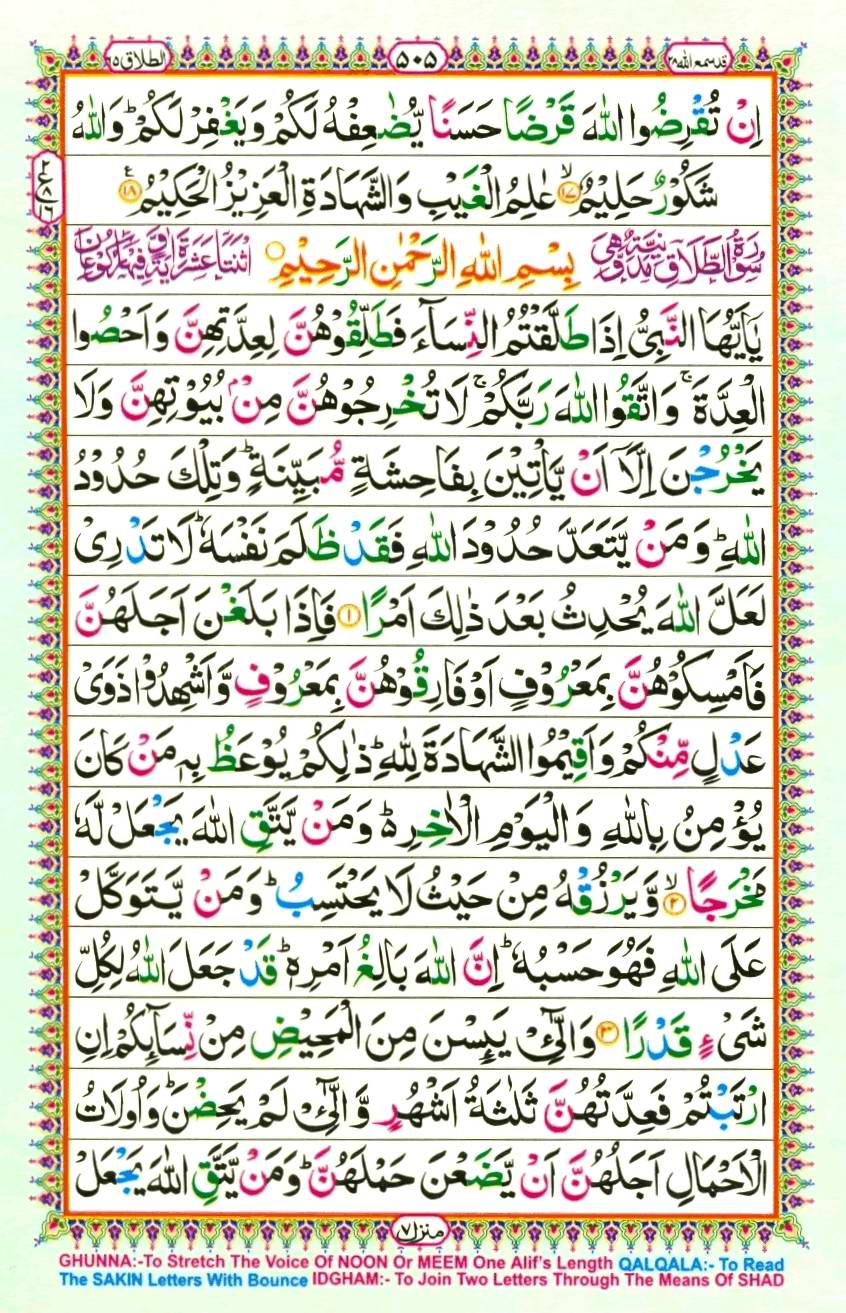 قد سمع الله ٢٨ ٥٠٥ الطلاق ٦٥
اِنْ تُقْرِضُوا اللّٰهَ قَرْضًا حَسَنًا يُّضٰعِفْهُ لَكُمْ وَيَغْفِرْ لَكُمْ ؕ وَاللّٰهُ
شَكُوْرٌ حَلِيْمٌ ۙ﴿١٧﴾ عٰلِمُ الْغَيْبِ وَالشَّهَادَةِ الْعَزِيْزُ الْحَكِيْمُ ﴿١٨﴾ ع
٢
ع ٨
١٦
سُوْرَةُ الطَّلَاقِ مَدَنِيَّةٌ وَّهِيَ بِسْمِ اللّٰهِ الرَّحْمٰنِ الرَّحِيْمِ اثْنَتَا عَشْرَةَ اٰيَةً وَّفِيْهَا رُكُوْعَانِ
يٰۤاَيُّهَا النَّبِىُّ اِذَا طَلَّقْتُمُ النِّسَآءَ فَطَلِّقُوْهُنَّ لِعِدَّتِهِنَّ وَاَحْصُوا
الْعِدَّةَ ۚ وَاتَّقُوا اللّٰهَ رَبَّكُمْ ۚ لَا تُخْرِجُوْهُنَّ مِنْۢ بُيُوْتِهِنَّ وَلَا
يَخْرُجْنَ اِلَّاۤ اَنْ يَّاْتِيْنَ بِفَاحِشَةٍ مُّبَيِّنَةٍ ؕ وَتِلْكَ حُدُوْدُ
اللّٰهِ ؕ وَمَنْ يَّتَعَدَّ حُدُوْدَ اللّٰهِ فَقَدْ ظَلَمَ نَفْسَهٗ ؕ لَا تَدْرِىْ
لَعَلَّ اللّٰهَ يُحْدِثُ بَعْدَ ذٰلِكَ اَمْرًا ﴿١﴾ فَاِذَا بَلَغْنَ اَجَلَهُنَّ
فَاَمْسِكُوْهُنَّ بِمَعْرُوْفٍ اَوْ فَارِقُوْهُنَّ بِمَعْرُوْفٍ وَّاَشْهِدُوْا ذَوَىْ
عَدْلٍ مِّنْكُمْ وَاَقِيْمُوا الشَّهَادَةَ لِلّٰهِ ؕ ذٰلِكُمْ يُوْعَظُ بِهٖ مَنْ كَانَ
يُؤْمِنُ بِاللّٰهِ وَالْيَوْمِ الْاٰخِرِ ؕ۬ وَمَنْ يَّتَّقِ اللّٰهَ يَجْعَلْ لَّهٗ
مَخْرَجًا ۙ﴿٢﴾ وَّيَرْزُقْهُ مِنْ حَيْثُ لَا يَحْتَسِبُ ؕ وَمَنْ يَّتَوَكَّلْ
عَلَى اللّٰهِ فَهُوَ حَسْبُهٗ ؕ اِنَّ اللّٰهَ بَالِغُ اَمْرِهٖ ؕ قَدْ جَعَلَ اللّٰهُ لِكُلِّ
شَىْءٍ قَدْرًا ﴿٣﴾ وَالّٰٓـىِٔ يَئِسْنَ مِنَ الْمَحِيْضِ مِنْ نِّسَآئِكُمْ اِنِ
ارْتَبْتُمْ فَعِدَّتُهُنَّ ثَلٰثَةُ اَشْهُرٍ وَّالّٰٓـىِٔ لَمْ يَحِضْنَ ؕ وَاُولَاتُ
الْاَحْمَالِ اَجَلُهُنَّ اَنْ يَّضَعْنَ حَمْلَهُنَّ ؕ وَمَنْ يَّتَّقِ اللّٰهَ يَجْعَلْ
منزل ٧
GHUNNA:-To Stretch The Voice Of NOON Or MEEM One Alif's Length QALQALA:- To Read
The SAKIN Letters With Bounce IDGHAM:- To Join Two Letters Through The Means Of SHAD